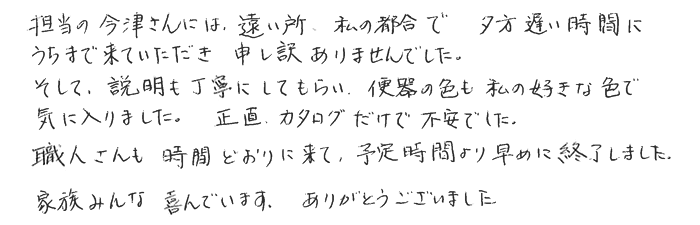 担当の今津さんには、遠い所、私の都合で 夕方遅い時間に
うちまで来ていただき 申し訳ありませんでした。
そして、説明も丁寧にしてもらい、便器の色も私の好きな色で
気に入りました。 正直、カタログだけで不安でした。
職人さんも時間どおりに来て、予定時間より早めに終了しました。
家族みんな喜んでいます。 ありがとうございました